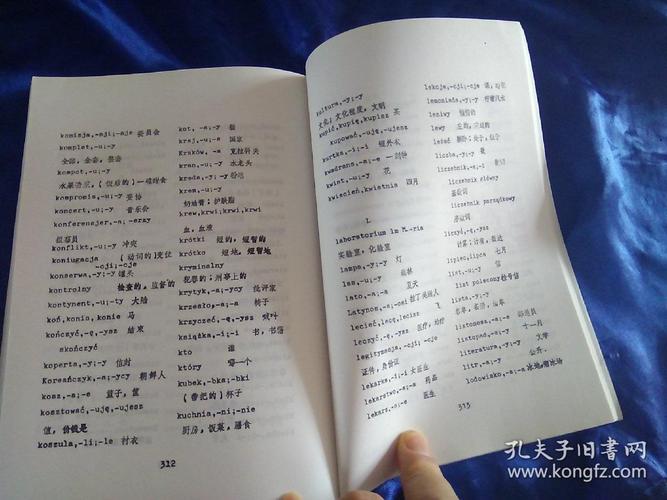 komisja,-ji;-cje 委员会
komplet,-u;-y
全部，全套，整套
kompot,-u;-y
水果
kompromis,-u;-y 妥协
koncert,-u;-y 音乐会
konferensjer,-a;-erzy
报幕员
konflikt,-u;-y 冲突
koniugacja (动词的)变位
-cji;-cje
konserwa,-y;-y 罐头
kontrolny 检查的，监督的
kontynent,-u;-ty 大陆
koń,konia,konie 马
kończyć,-ę,-ysz 结束
skończyć
koperta,-y;-y 信封
Koreańczyk,-a;-ycy 朝鲜人
kosz,-a;-e 篮子，筐
kosztować,-uję,-ujesz
值，价钱是
koszula,-li;-le 衬衣
312
kot,-a;-y 猫
kraj,-u;-e 国家
Kraków,-a 克拉科夫
kran,-u;-y 水龙头
kreda,-y;-y 粉笔
krem,-u;-y
奶油膏；护肤脂
krew,krwi;krwi
血，血液
krótki 短的，短暂的
krótko 短地，短暂地
kryminalny
犯罪的；刑事上的
krytyk,-a;-ycy 批评家
krzesło,-a;-a 椅子
krzyczeć,-ę,-ysz 喊叫
książka,-i;-i 书，书籍
kto 谁
który 哪一个
kubek,-bka;-bki
(带把的)杯子
kuchnia,-ni;-nie
厨房，饭菜，膳食
kultura,-y;-y
文化；文化程度，文明
kupić,kupię,kupisz 买
kupować,-uję,-ujesz
kurtka,-i;-i 短外衣
kwadrans,-a;-e 一刻钟
kwiat,-u;-y 花
kwiecień,kwietnia 四月
L
laboratorium
实验室，化验室
lampa,-y;-y 灯
las,-u;-y 森林
lato,-a;-a 夏天
Latynos,-a;-osi 拉丁美洲人
lecieć,lecę,lecisz 飞
leczyć,-ę,-ysz 医疗，治疗
legitymacja,-cji;-cje
证件，身份证
lekarka,-i;-i 女医生
lekarstwo,-a;-a 药品
lekarz,-a;-e 医生
lekcja,-cji;-cje 课，功课
lemoniada,-y;-y 柠檬汽水
leniwy 懒惰的
lewy 左的，左边的
leżeć
liczba,-y;-y 数
liczebnik,-a;-i 数词
liczebnik główny
基数词
liczebnik porządkowy
序数词
liczyć,-ę,-ysz
计算；计有，值
lipiec,lipca 七月
list,-u;-y 信
list polecony 挂号信
lista,-y;-y
名单，名册，清单
listonosz,-a;-e 邮递员
listopad,-a;-y 十一月
literatura,-y;-y 文学
litr,-a;-y 公升
lodowisko,-a;-a 冰地，溜冰场
313
孔夫子旧书网
www.kongfz.com